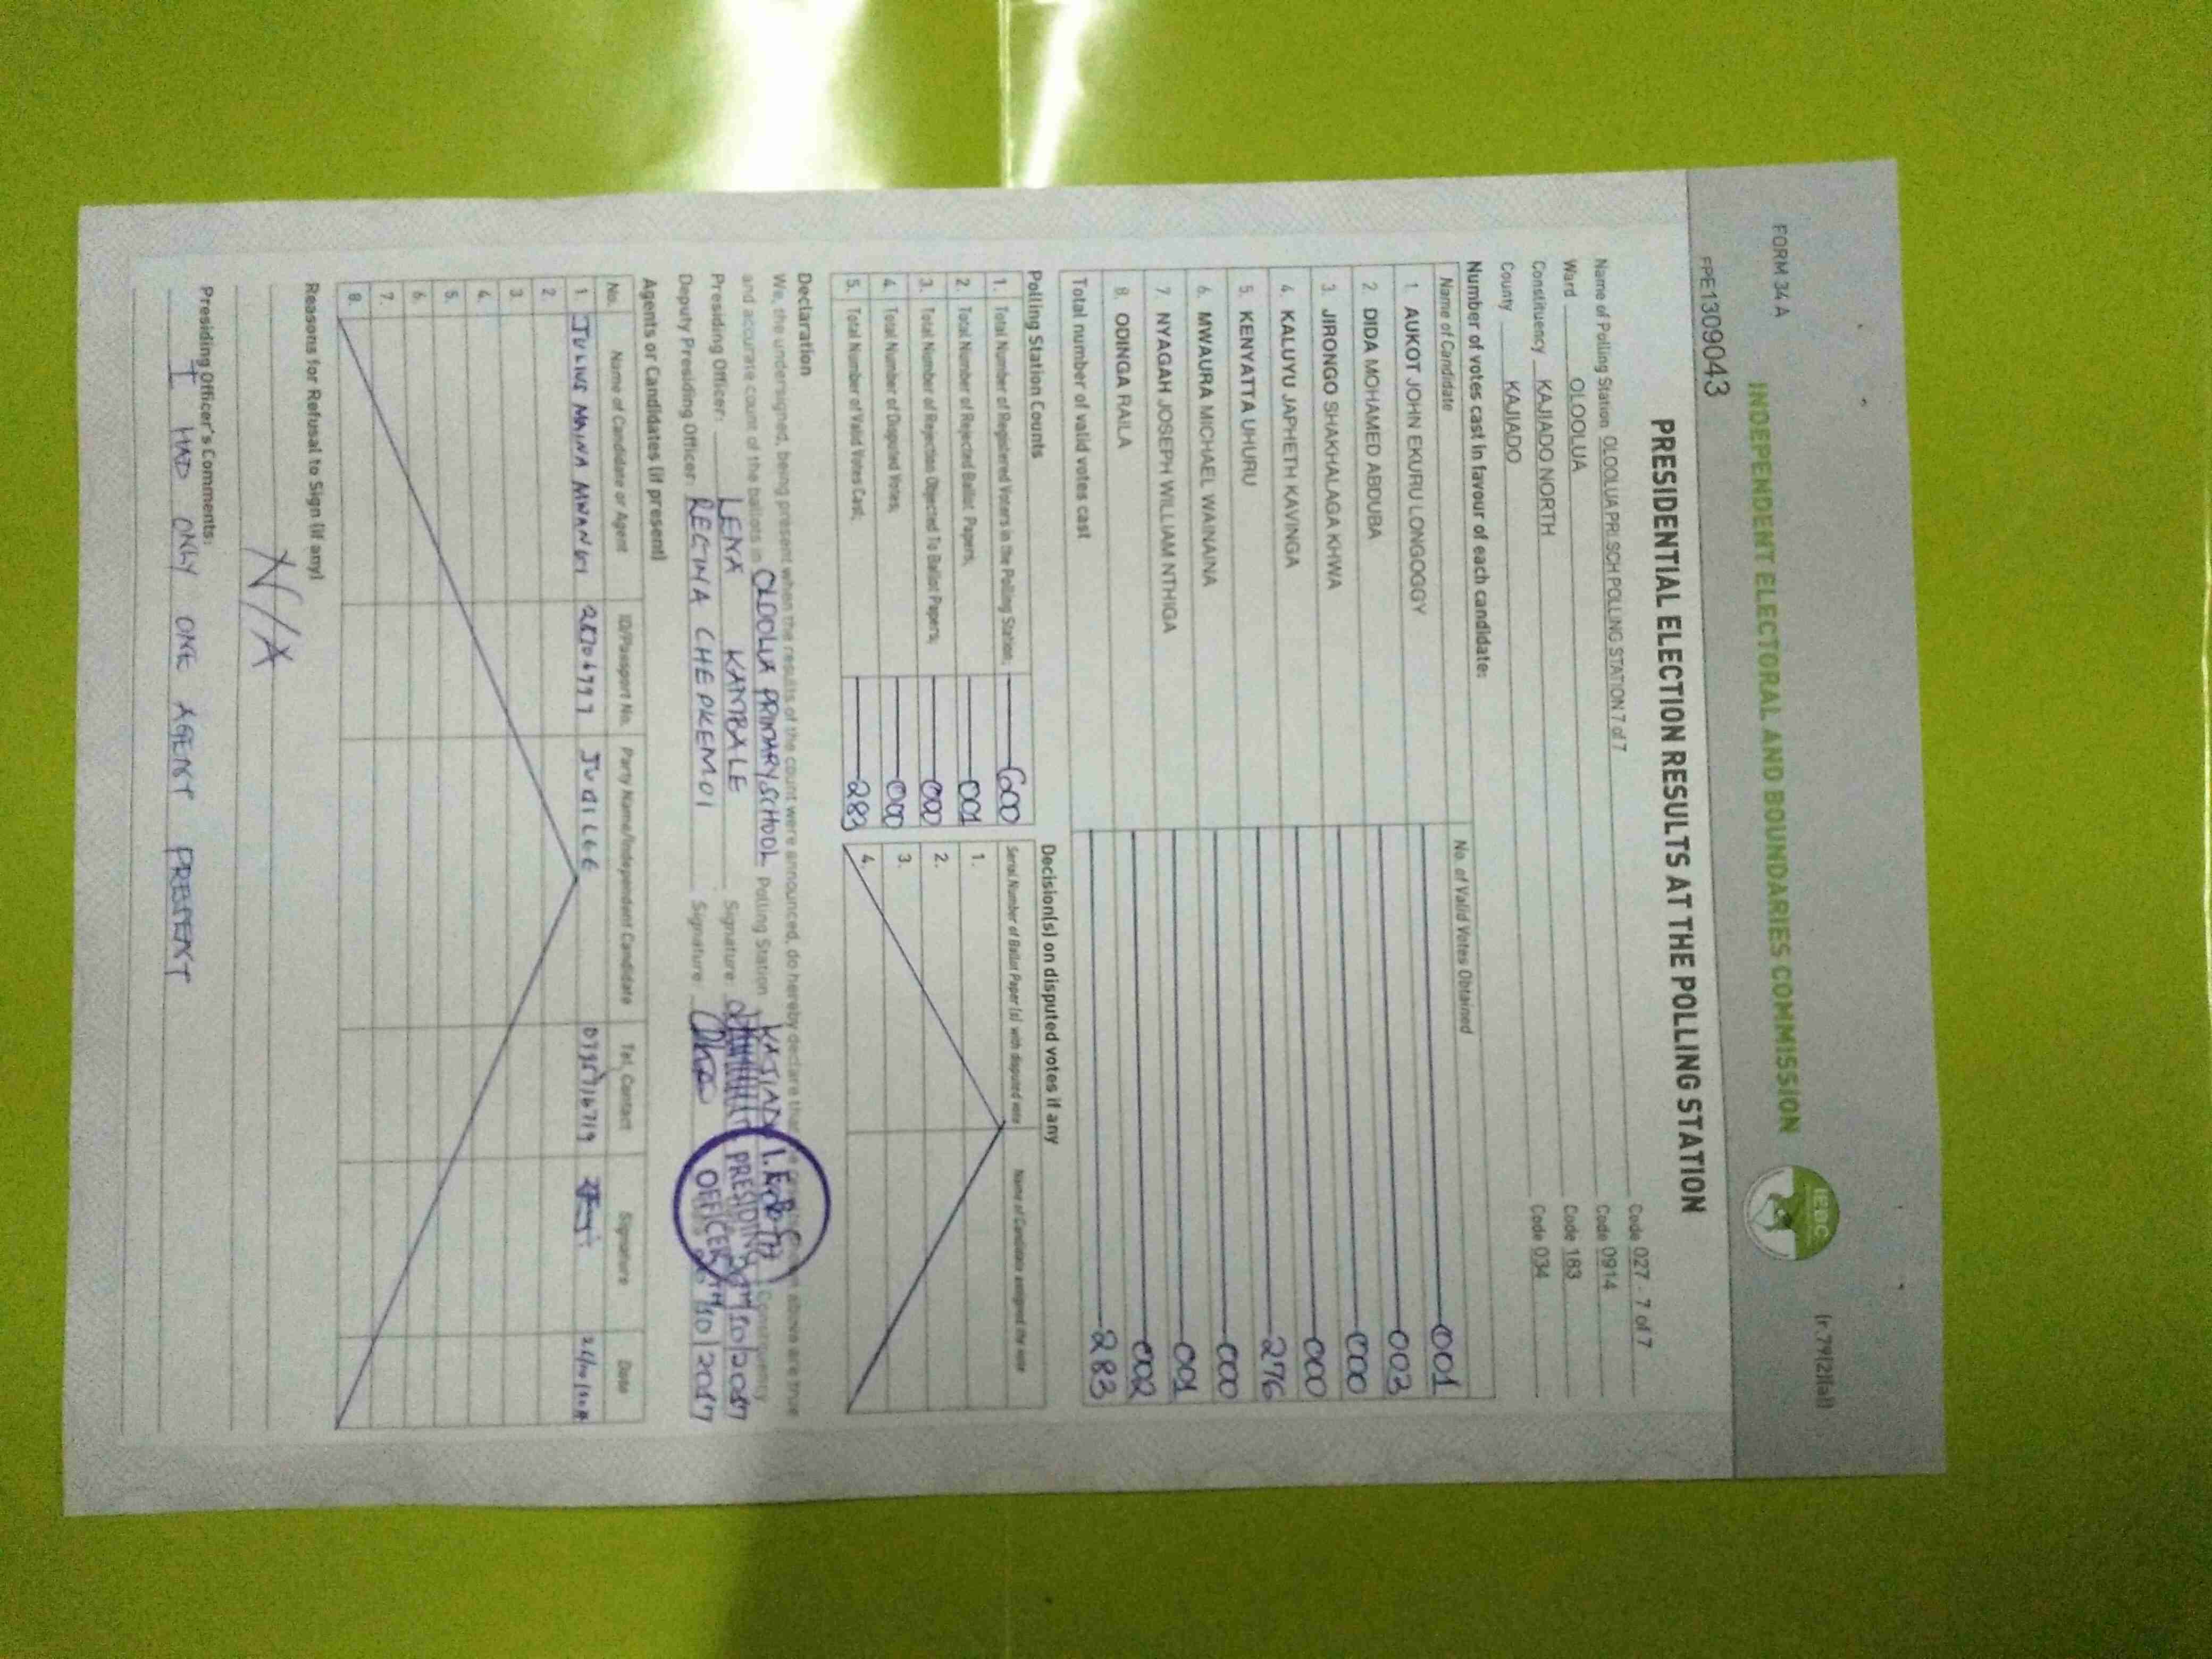 FORM 34 A
(r.79(2)(a))
INDEPENDENT ELECTORAL AND BOUNDARIES COMMISSION
IEBC
FPE1309043
PRESIDENTIAL ELECTION RESULTS AT THE POLLING STATION
Name of Polling Station OLOOLUA PRI SCH POLLING STATION 7 of 7 Code 027 - 7 of 7
Ward OLOOLUA Code 0914
Constituency KAJIADO NORTH Code 183
County KAJIADO Code 034
Number of votes cast in favour of each candidate:
Name of Candidate No. of Valid Votes Obtained
1. AUKOT JOHN EKURU LONGOGGY 001
2. DIDA MOHAMED ABDUBA 003
3. JIRONGO SHAKHALAGA KHWA 000
4. KALUYU JAPHETH KAVINGA 000
5. KENYATTA UHURU 276
6. MWAURA MICHAEL WAINAINA 000
7. NYAGAH JOSEPH WILLIAM NTHIGA 001
8. ODINGA RAILA 002
Total number of valid votes cast 283
Polling Station Counts
1. Total Number of Registered Voters in the Polling Station; 600
2. Total Number of Rejected Ballot Papers; 001
3. Total Number of Rejection Objected To Ballot Papers; 000
4. Total Number of Disputed Votes; 000
5. Total Number of Valid Votes Cast; 283
Decision(s) on disputed votes if any
Serial Number of Ballot Paper (s) with disputed vote Name of Candidate assigned the vote
1.
2.
3.
4.
Declaration
We, the undersigned, being present when the results of the count were announced, do hereby declare that above are true
and accurate count of the ballots in OLOOLUA PRIMARY SCHOOL Polling Station Constituency
Presiding Officer: LENA KAMBALE Signature: /10/2017
Deputy Presiding Officer: REGINA CHEPKEMOI Signature: /10/2017
I.E.B.C
PRESIDING
OFFICER
Agents or Candidates (if present)
No. Name of Candidate or Agent ID/Passport No. Party Name/Independent Candidate Tel. Contact Signature Date
1. JULIUS MAINA MWANGI JUBILEE
2.
3.
4.
5.
6.
7.
8.
Reasons for Refusal to Sign (if any)
N/A
Presiding Officer's Comments:
I HAD ONLY ONE AGENT PRESENT